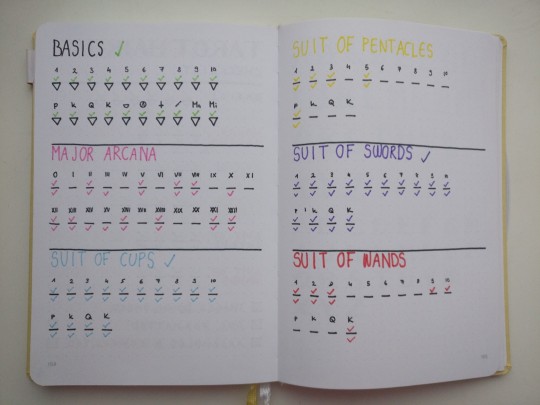 BASICS ✓
1 2 3 4 5 6 7 8 9 10
P K Q K Ma Mi
MAJOR ARCANA
0 I II III IV V VI VII VIII IX X XI
XII XIII XIV XV XVI XVII XVIII XIX XX XXI XXII
SUIT OF CUPS ✓
1 2 3 4 5 6 7 8 9 10
P K Q K
SUIT OF PENTACLES
1 2 3 4 5 6 7 8 9 10
P K Q K
SUIT OF SWORDS ✓
1 2 3 4 5 6 7 8 9 10
P K Q K
SUIT OF WANDS
1 2 3 4 5 6 7 8 9 10
P K Q K